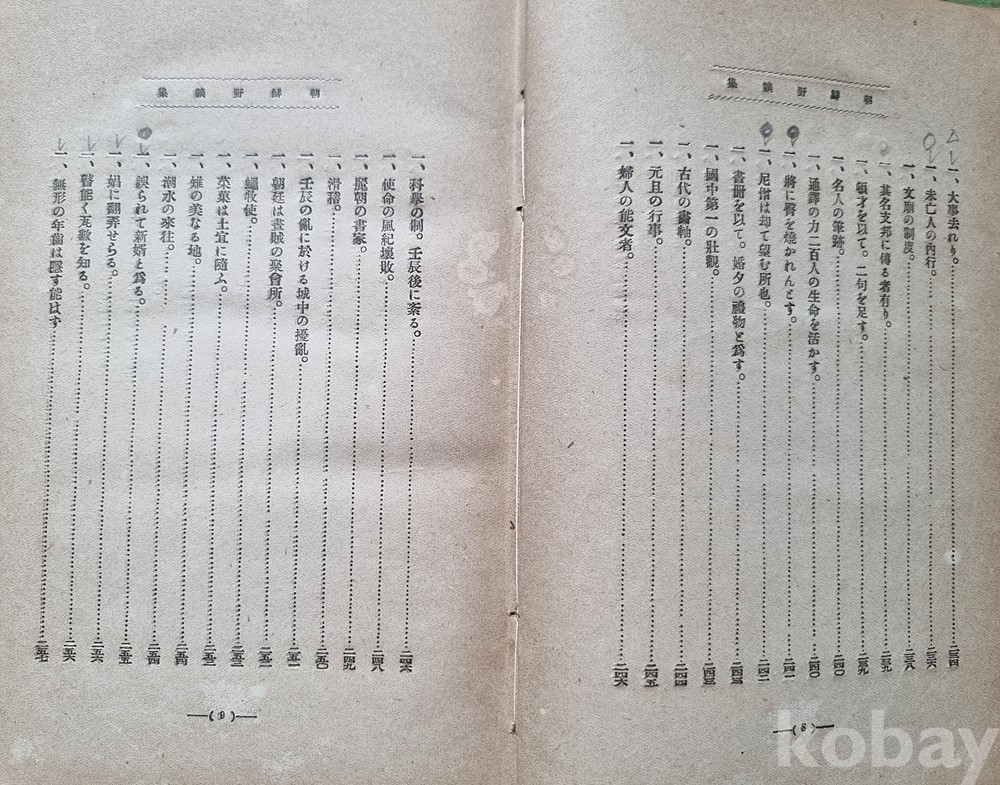 朝鮮野談集
一、大事去れり。……二三四
一、未亡人の內行。……二三六
一、文廟の制度。……二三八
一、其名支那に傳る者有り。……二三九
一、頓才を以て。二句を足す。……二三九
一、名人の筆跡。……二四〇
一、通譯の力二百人の生命を活かす。……二四〇
一、將に臀を燒かれんとす。……二四一
一、尼僧は却て望む所也。……二四二
一、書冊を以て。婚夕の禮物と爲す。……二四三
一、國中第一の壯觀。……二四三
一、古代の書軸。……二四四
一、元旦の行事。……二四五
一、婦人の能文者。……二四六
(8)
朝鮮野談集
一、科擧の制。壬辰後に紊る。……二四六
一、使命の風紀壞敗。……二四八
一、麗朝の書家。……二四九
一、滑稽。……二五〇
一、壬辰の亂に於ける城中の擾亂。……二五一
一、朝廷は晝賊の聚會所。……二五二
一、蠟牧使。……二五三
一、菜菓は土宜に隨ふ。……二五三
一、雉の美なる地。……二五三
一、潮水の來往。……二五四
一、誤られて新婿と爲る。……二五四
一、娼に翻弄せらる。……二五五
一、瞽能く亥數を知る。……二五六
一、無形の年齒は隱す能はず……二五七
(9)
kobay